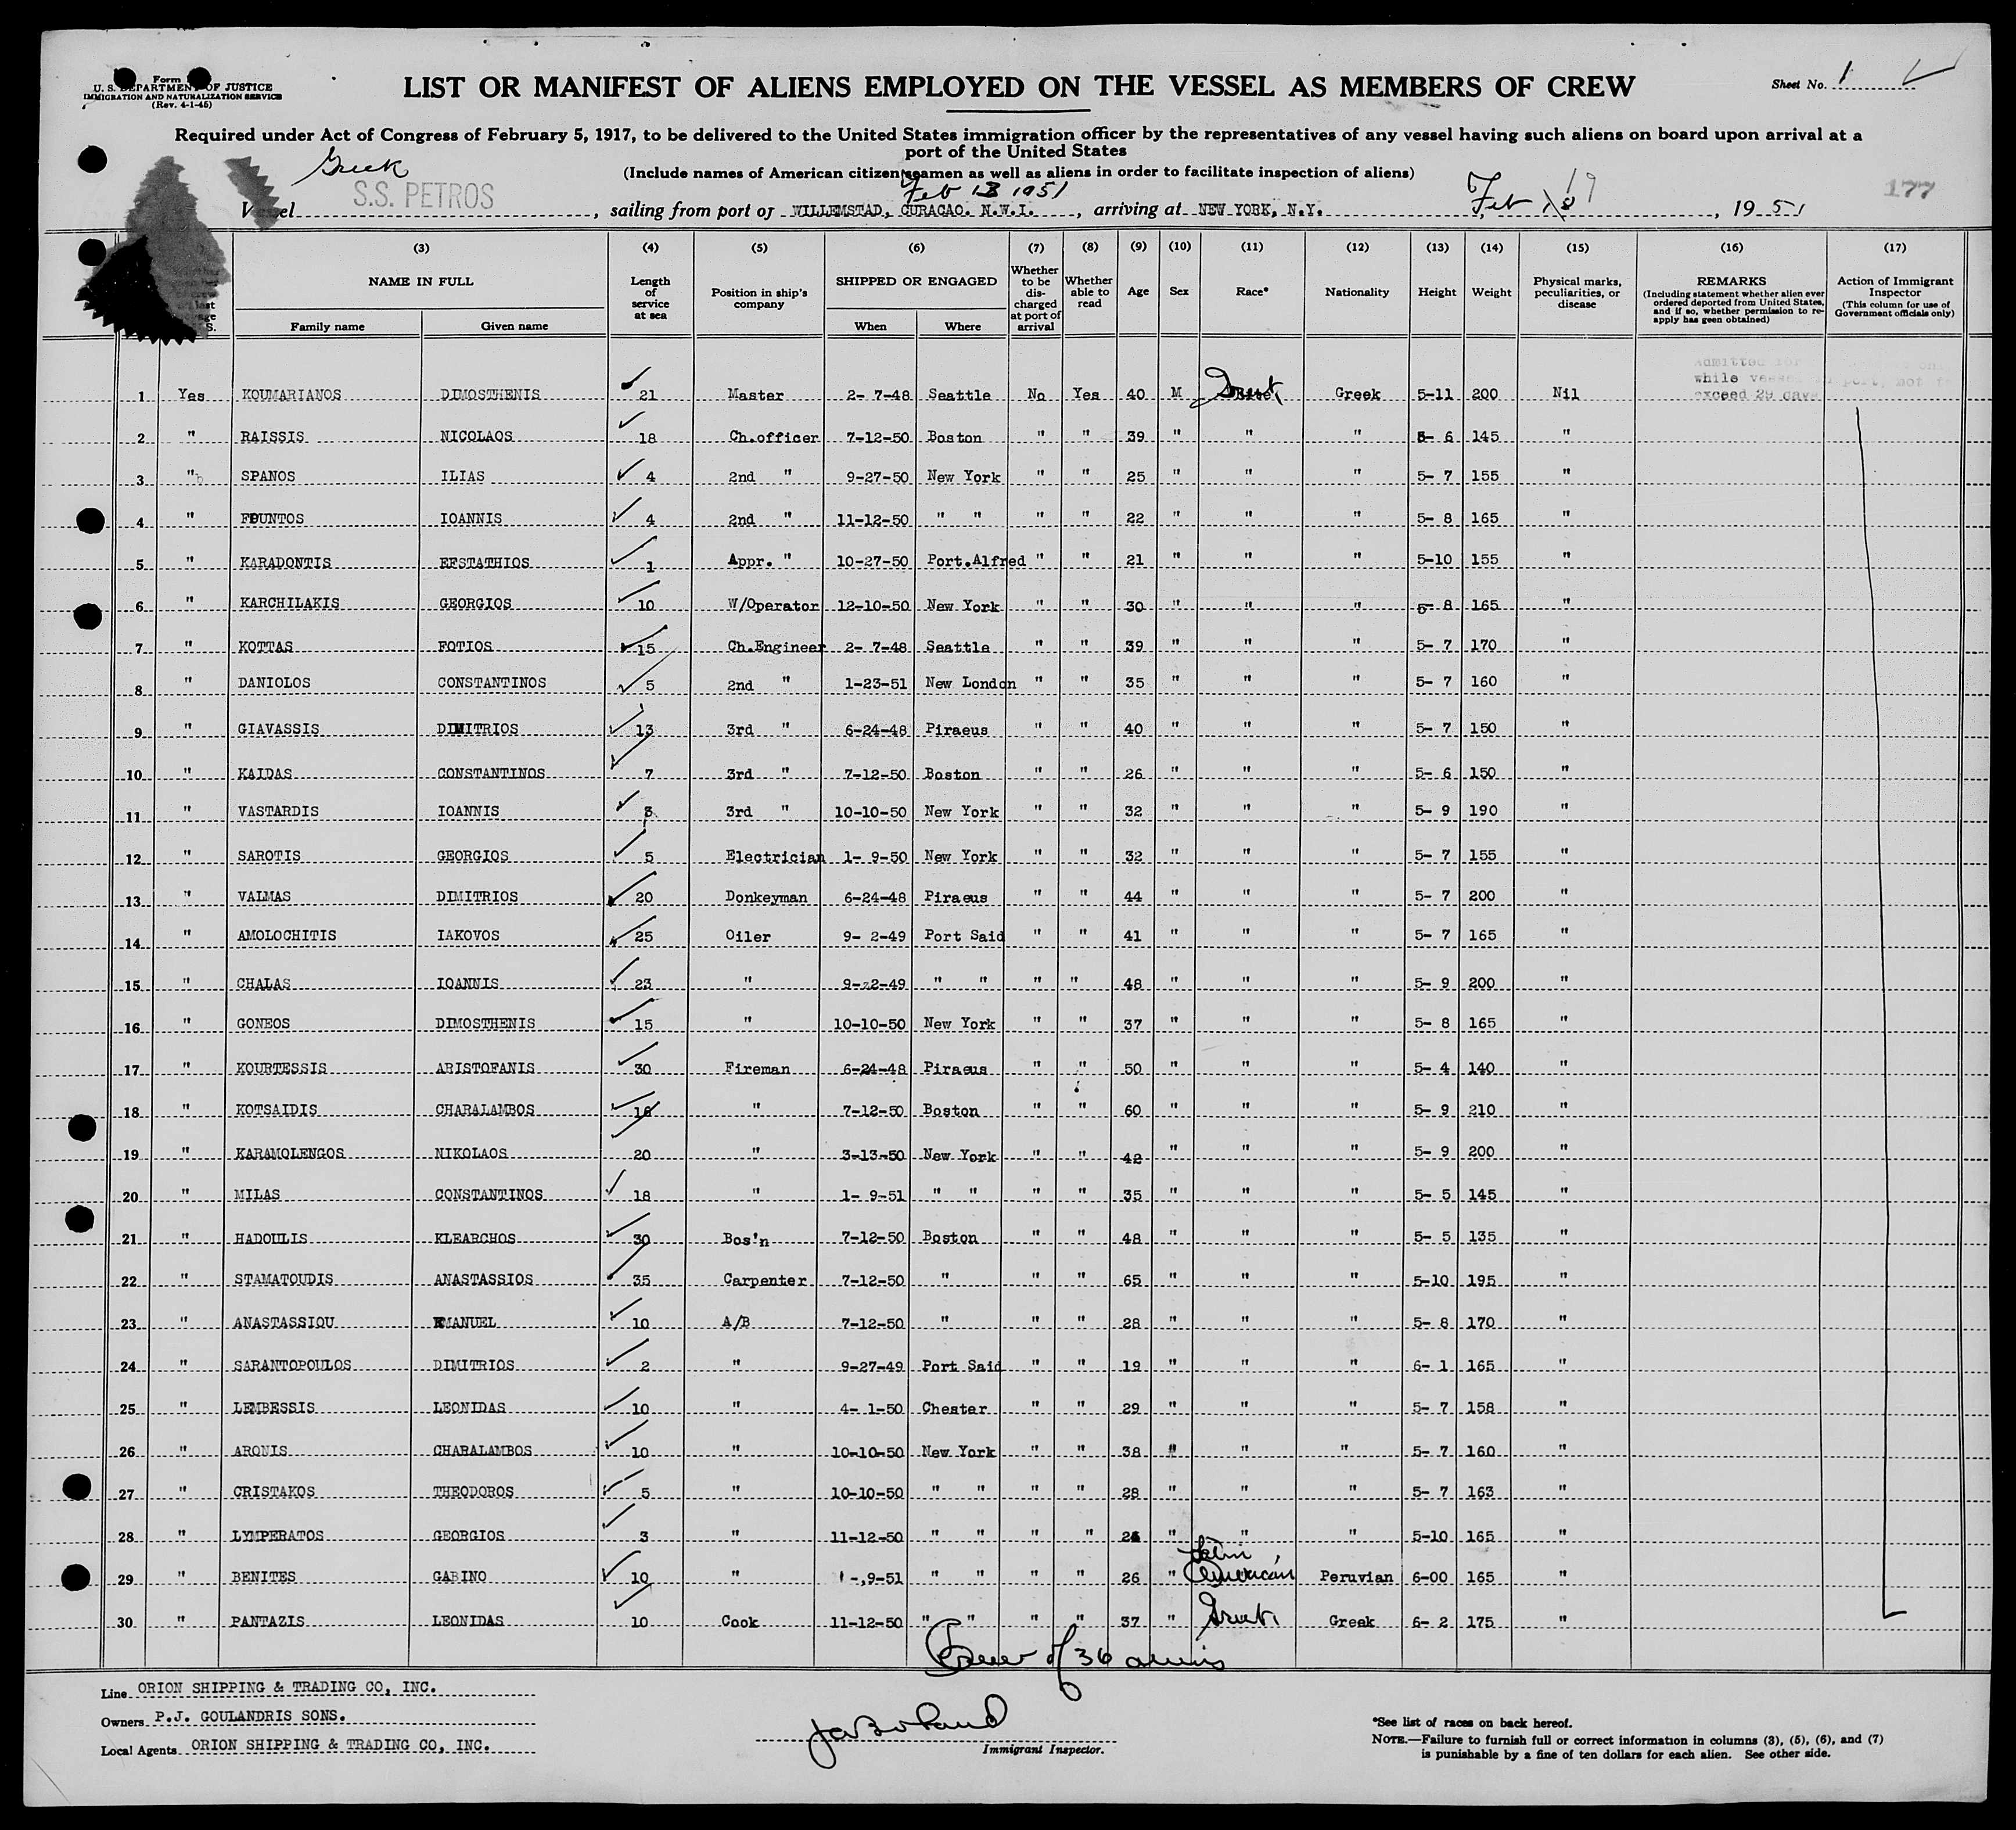 Form
U. S. DEPARTMENT OF JUSTICE
IMMIGRATION AND NATURALIZATION SERVICE
(Rev. 4-1-45)
LIST OR MANIFEST OF ALIENS EMPLOYED ON THE VESSEL AS MEMBERS OF CREW
Sheet No. 1
Required under Act of Congress of February 5, 1917, to be delivered to the United States immigration officer by the representatives of any vessel having such aliens on board upon arrival at a
port of the United States
(Include names of American citizen seamen as well as aliens in order to facilitate inspection of aliens)
Greek
Feb 13 1951
Vessel S.S. PETROS, sailing from port of WILLEMSTAD, CURACAO. N.W.I., arriving at NEW YORK, N.Y. Feb 19, 1951
177
(3) (4) (5) (6) (7) (8) (9) (10) (11) (12) (13) (14) (15) (16) (17)
NAME IN FULL
Family name Given name
Length of service at sea
Position in ship's company
SHIPPED OR ENGAGED
When Where
Whether to be discharged at port of arrival
Whether able to read
Age Sex Race* Nationality Height Weight
Physical marks, peculiarities, or disease
REMARKS
(Including statement whether alien ever ordered deported from United States, and if so, whether permission to reapply has geen obtained)
Action of Immigrant Inspector
(This column for use of Government officials only)
Admitted for
while vessel in port, not to
exceed 29 days
1 Yes KOUMARIANOS DIMOSTHENIS 21 Master 2- 7-48 Seattle No Yes 40 M Greek Greek 5-11 200 Nil
2 " RAISSIS NICOLAOS 18 Ch.officer 7-12-50 Boston " " 39 " " " 5- 6 145 "
3 " SPANOS ILIAS 4 2nd " 9-27-50 New York " " 25 " " " 5- 7 155 "
4 " FOUNTOS IOANNIS 4 2nd " 11-12-50 " " " " 22 " " " 5- 8 165 "
5 " KARADONTIS EFSTATHIOS 1 Appr. " 10-27-50 Port.Alfred " " 21 " " " 5-10 155 "
6 " KARCHILAKIS GEORGIOS 10 W/Operator 12-10-50 New York " " 30 " " " 5- 8 165 "
7 " KOTTAS FOTIOS 15 Ch.Engineer 2- 7-48 Seattle " " 39 " " " 5- 7 170 "
8 " DANIOLOS CONSTANTINOS 5 2nd " 1-23-51 New London " " 35 " " " 5- 7 160 "
9 " GIAVASSIS DIMITRIOS 13 3rd " 6-24-48 Piraeus " " 40 " " " 5- 7 150 "
10 " KAIDAS CONSTANTINOS 7 3rd " 7-12-50 Boston " " 26 " " " 5- 6 150 "
11 " VASTARDIS IOANNIS 3 3rd " 10-10-50 New York " " 32 " " " 5- 9 190 "
12 " SAROTIS GEORGIOS 5 Electrician 1- 9-50 New York " " 32 " " " 5- 7 155 "
13 " VALMAS DIMITRIOS 20 Donkeyman 6-24-48 Piraeus " " 44 " " " 5- 7 200 "
14 " AMOLOCHITIS IAKOVOS 25 Oiler 9- 2-49 Port Said " " 41 " " " 5- 7 165 "
15 " CHALAS IOANNIS 23 " 9-2-49 " " " " 48 " " " 5- 9 200 "
16 " GONEOS DIMOSTHENIS 15 " 10-10-50 New York " " 37 " " " 5- 8 165 "
17 " KOURTESSIS ARISTOFANIS 30 Fireman 6-24-48 Piraeus " " 50 " " " 5- 4 140 "
18 " KOTSAIDIS CHARALAMBOS 16 " 7-12-50 Boston " " 60 " " " 5- 9 210 "
19 " KARAMOLENGOS NIKOLAOS 20 " 3-13-50 New York " " 42 " " " 5- 9 200 "
20 " MILAS CONSTANTINOS 18 " 1- 9-51 " " " " 35 " " " 5- 5 145 "
21 " HADOULIS KLEARCHOS 30 Bos'n 7-12-50 Boston " " 48 " " " 5- 5 135 "
22 " STAMATOUDIS ANASTASSIOS 35 Carpenter 7-12-50 " " " 65 " " " 5-10 195 "
23 " ANASTASSIOU EMANUEL 10 A/B 7-12-50 " " " 28 " " " 5- 8 170 "
24 " SARANTOPOULOS DIMITRIOS 2 " 9-27-49 Port Said " " 19 " " " 6- 1 165 "
25 " LEMBESSIS LEONIDAS 10 " 4- 1-50 Chester " " 29 " " " 5- 7 158 "
26 " ARONIS CHARALAMBOS 10 " 10-10-50 New York " " 38 " " " 5- 7 160 "
27 " CRISTAKOS THEODOROS 5 " 10-10-50 " " " " 28 " " " 5- 7 163 "
28 " LYMPERATOS GEORGIOS 3 " 11-12-50 " " " " 26 " " " 5-10 165 "
29 " BENITES GABINO 10 " 1-,9-51 " " " " 26 " Latin American Peruvian 6-00 165 "
30 " PANTAZIS LEONIDAS 10 Cook 11-12-50 " " " " 37 " Greek Greek 6- 2 175 "
Crew of 36 aliens
Line ORION SHIPPING & TRADING CO, INC.
Owners P.J. GOULANDRIS SONS.
Local Agents ORION SHIPPING & TRADING CO, INC.
Immigrant Inspector.
*See list of races on back hereof.
NOTE.—Failure to furnish full or correct information in columns (3), (5), (6), and (7)
is punishable by a fine of ten dollars for each alien. See other side.